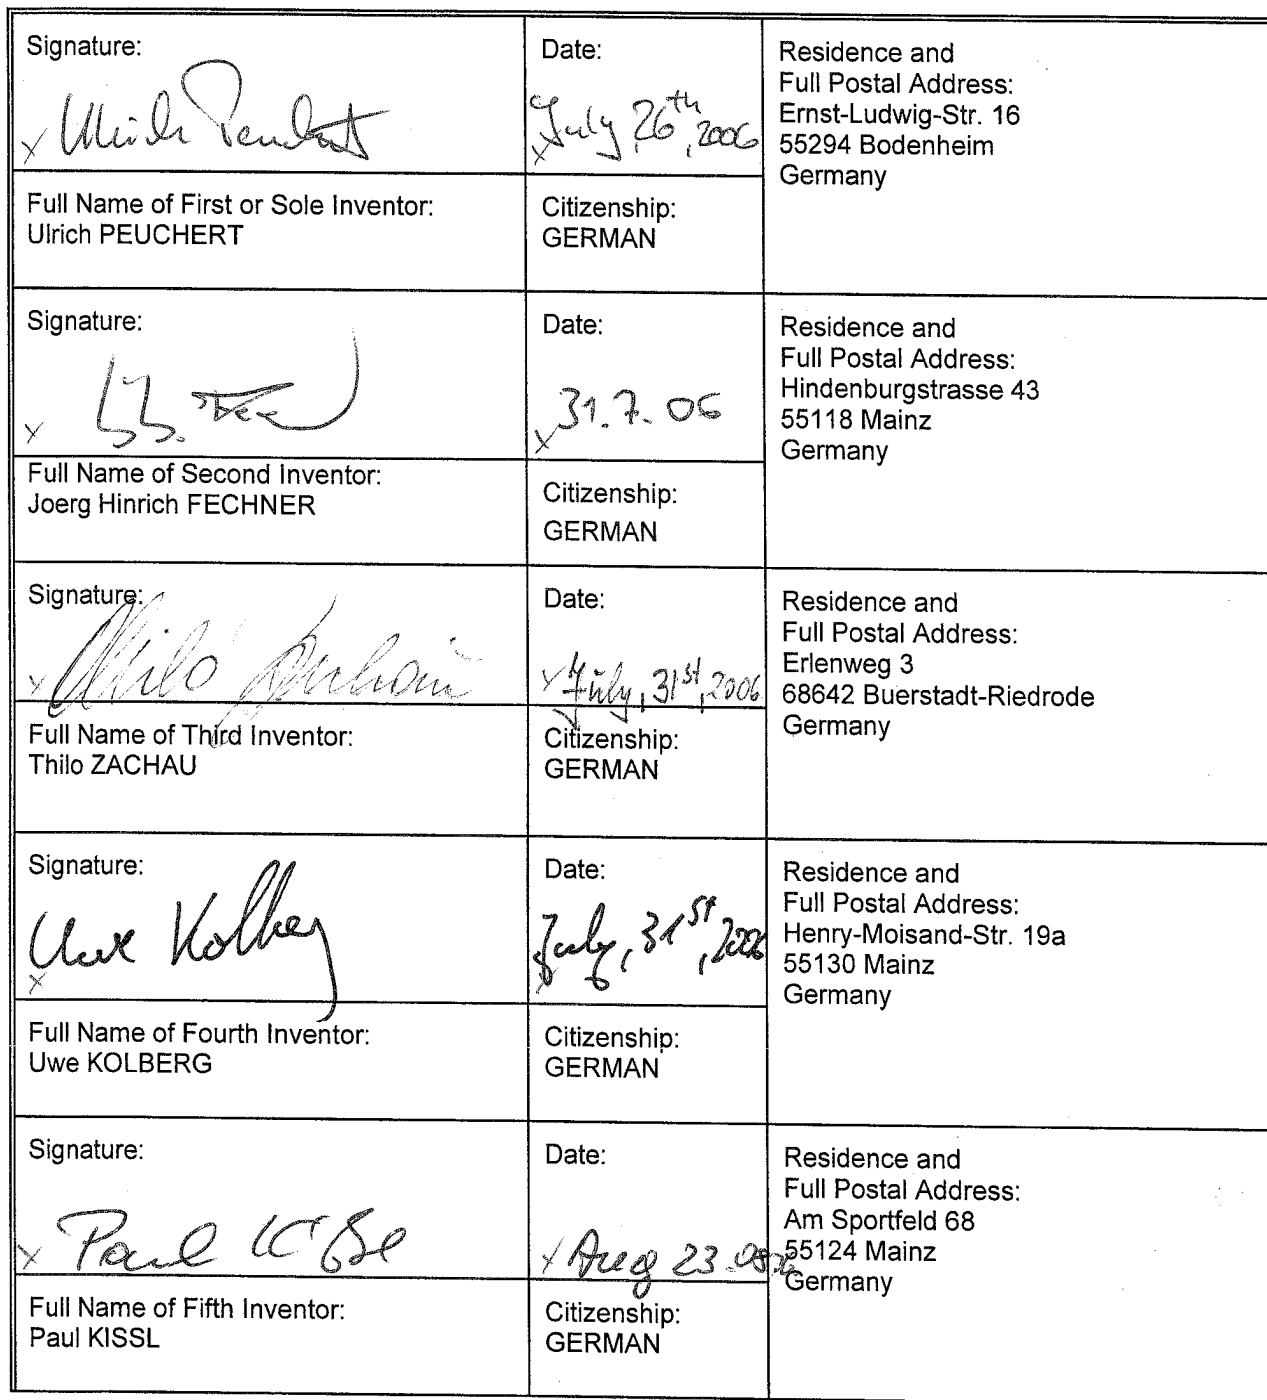 Signature:
x Ulrich Peuchert
Date:
x July 26th, 2006
Residence and
Full Postal Address:
Ernst-Ludwig-Str. 16
55294 Bodenheim
Germany
Full Name of First or Sole Inventor:
Ulrich PEUCHERT
Citizenship:
GERMAN
Signature:
x
Date:
x 31.7.06
Residence and
Full Postal Address:
Hindenburgstrasse 43
55118 Mainz
Germany
Full Name of Second Inventor:
Joerg Hinrich FECHNER
Citizenship:
GERMAN
Signature:
x Thilo Zachau
Date:
x July, 31st, 2006
Residence and
Full Postal Address:
Erlenweg 3
68642 Buerstadt-Riedrode
Germany
Full Name of Third Inventor:
Thilo ZACHAU
Citizenship:
GERMAN
Signature:
x Uwe Kolberg
Date:
x July, 31st, 2006
Residence and
Full Postal Address:
Henry-Moisand-Str. 19a
55130 Mainz
Germany
Full Name of Fourth Inventor:
Uwe KOLBERG
Citizenship:
GERMAN
Signature:
x Paul Kißl
Date:
x Aug 23.08.
Residence and
Full Postal Address:
Am Sportfeld 68
55124 Mainz
Germany
Full Name of Fifth Inventor:
Paul KISSL
Citizenship:
GERMAN